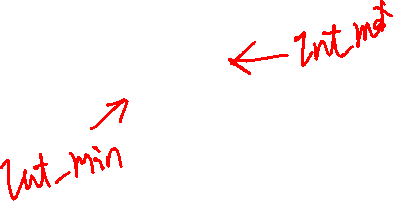 Int_max
Int_min